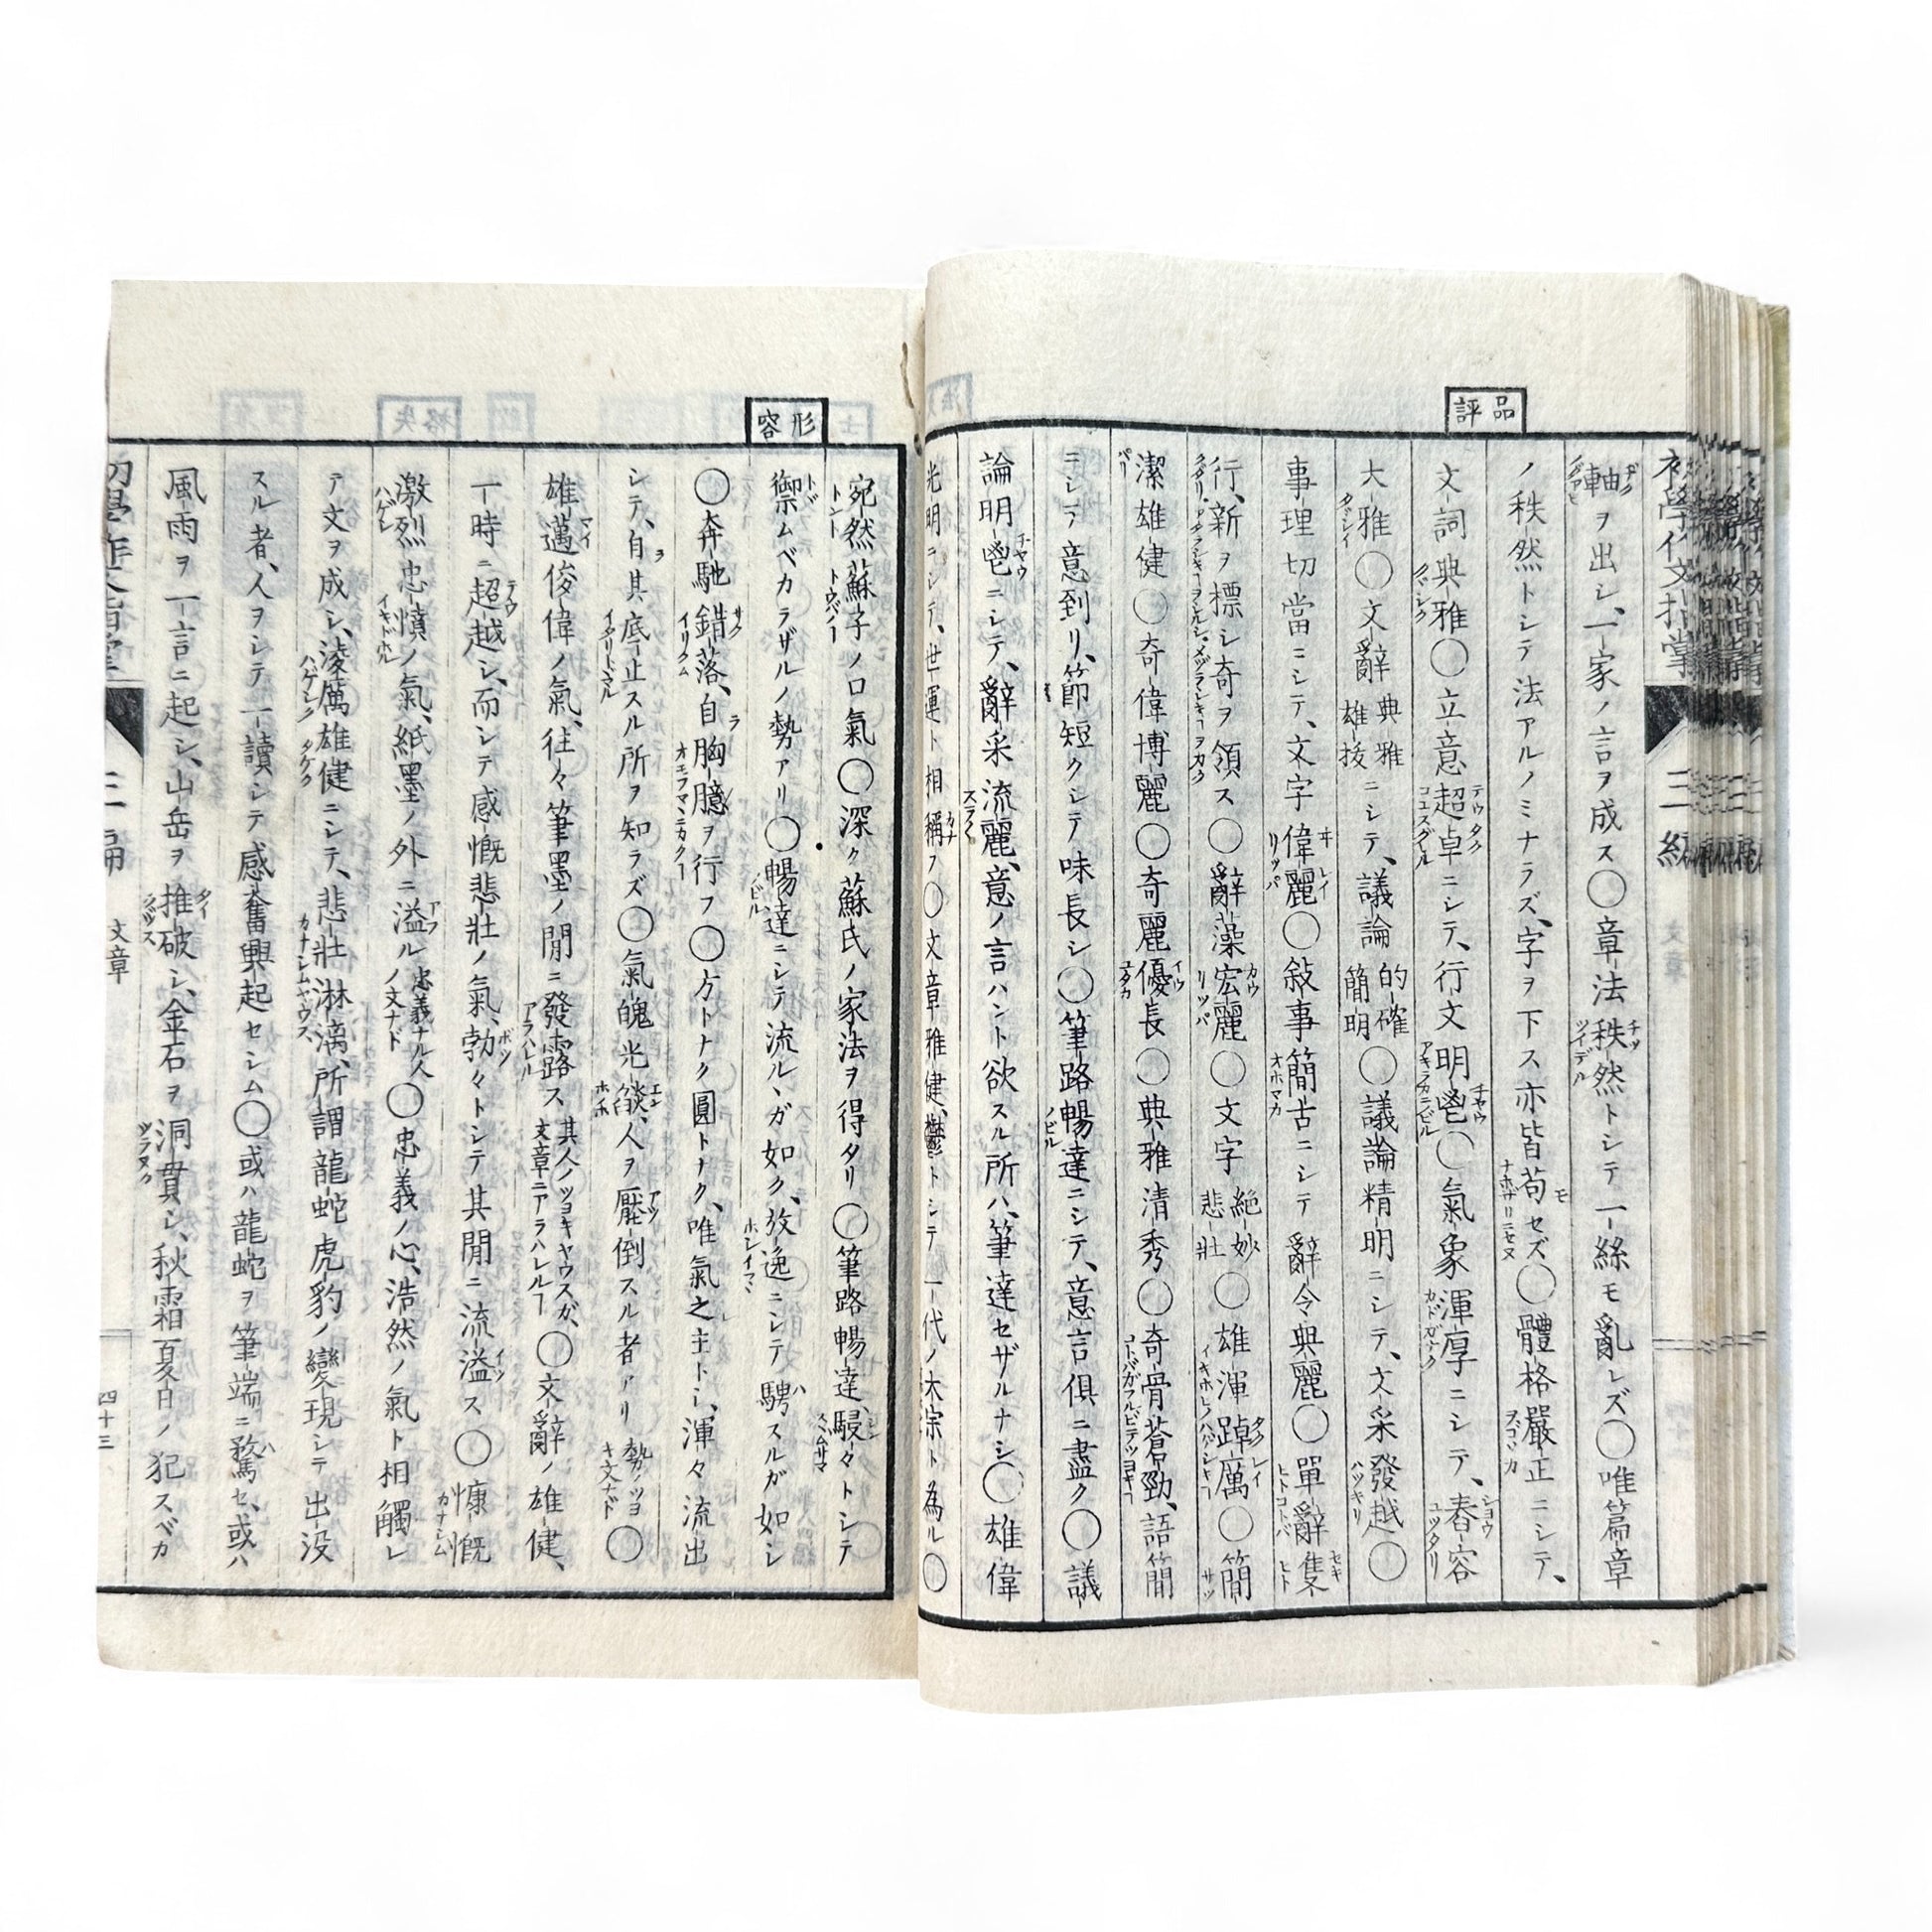 品評
軸ヲ出シ、一家ノ言ヲ成ス〇章法秩然トシテ一絲モ亂レズ〇唯篇章
ノ秩然トシテ法アルノミナラズ、字ヲ下ス亦皆苟モセズ〇體格嚴正ニシテ、
文詞典雅〇立意超卓ニシテ、行文明鬯〇氣象渾厚ニシテ、舂容
大雅〇文辭典雅雄抜ニシテ、議論的確簡明〇議論精明ニシテ、文采發越〇
事理切當ニシテ、文字偉麗〇敍事簡古ニシテ辭令典麗〇單辭隻
行、新ヲ標シ奇ヲ領ス〇辭藻宏麗〇文字絶妙悲壯〇雄渾踔厲〇簡
潔雄健〇奇偉博麗〇奇麗優長〇典雅清秀〇奇骨蒼勁、語簡
ニシテ意到リ、節短クシテ味長シ〇筆路暢達ニシテ、意言俱ニ盡ク〇議
論明鬯ニシテ、辭采流麗、意ノ言ハント欲スル所ハ、筆達セザルナシ〇雄偉
光明ニシテ、世運ト相稱フ〇文章雅健、鬱トシテ一代ノ大宗ト為ル〇
形容
宛然蘇子ノ口氣〇深ク蘇氏ノ家法ヲ得タリ〇筆路暢達、駸々トシテ
禦ムベカラザルノ勢アリ〇暢達ニシテ流ルヽガ如ク、放逸ニシテ騁スルガ如シ
〇奔馳錯落、自ラ胸臆ヲ行フ〇方トナク圓トナク、唯氣之レ主トシ、渾々流出
シテ、自ヲ其底止スル所ヲ知ラズ〇氣魄光燄、人ヲ壓倒スル者アリ勢ノツヨキ文ナド〇
雄邁俊偉ノ氣、往々筆墨ノ閒ニ發露ス其人ノツヨキヤウスガ、文章ニアラハレルヿ〇文辭ノ雄健、
一時ニ超越シ、而シテ感慨悲壯ノ氣、勃々トシテ其閒ニ流溢ス〇慷慨
激烈忠憤ノ氣、紙墨ノ外ニ溢ル忠義ナル人ノ文ナド〇忠義ノ心、浩然ノ氣ト相觸レ
テ文ヲ成シ、淩厲雄健ニシテ、悲壯淋漓、所謂龍蛇虎豹ノ變現シテ出没
スル者、人ヲシテ一讀シテ感奮興起セシム〇或ハ龍蛇ヲ筆端ニ騖セ、或ハ
風雨ヲ一言ニ起シ、山岳ヲ推破シ、金石ヲ洞貫シ、秋霜夏日ノ犯スベカ
三編
文章
四十三